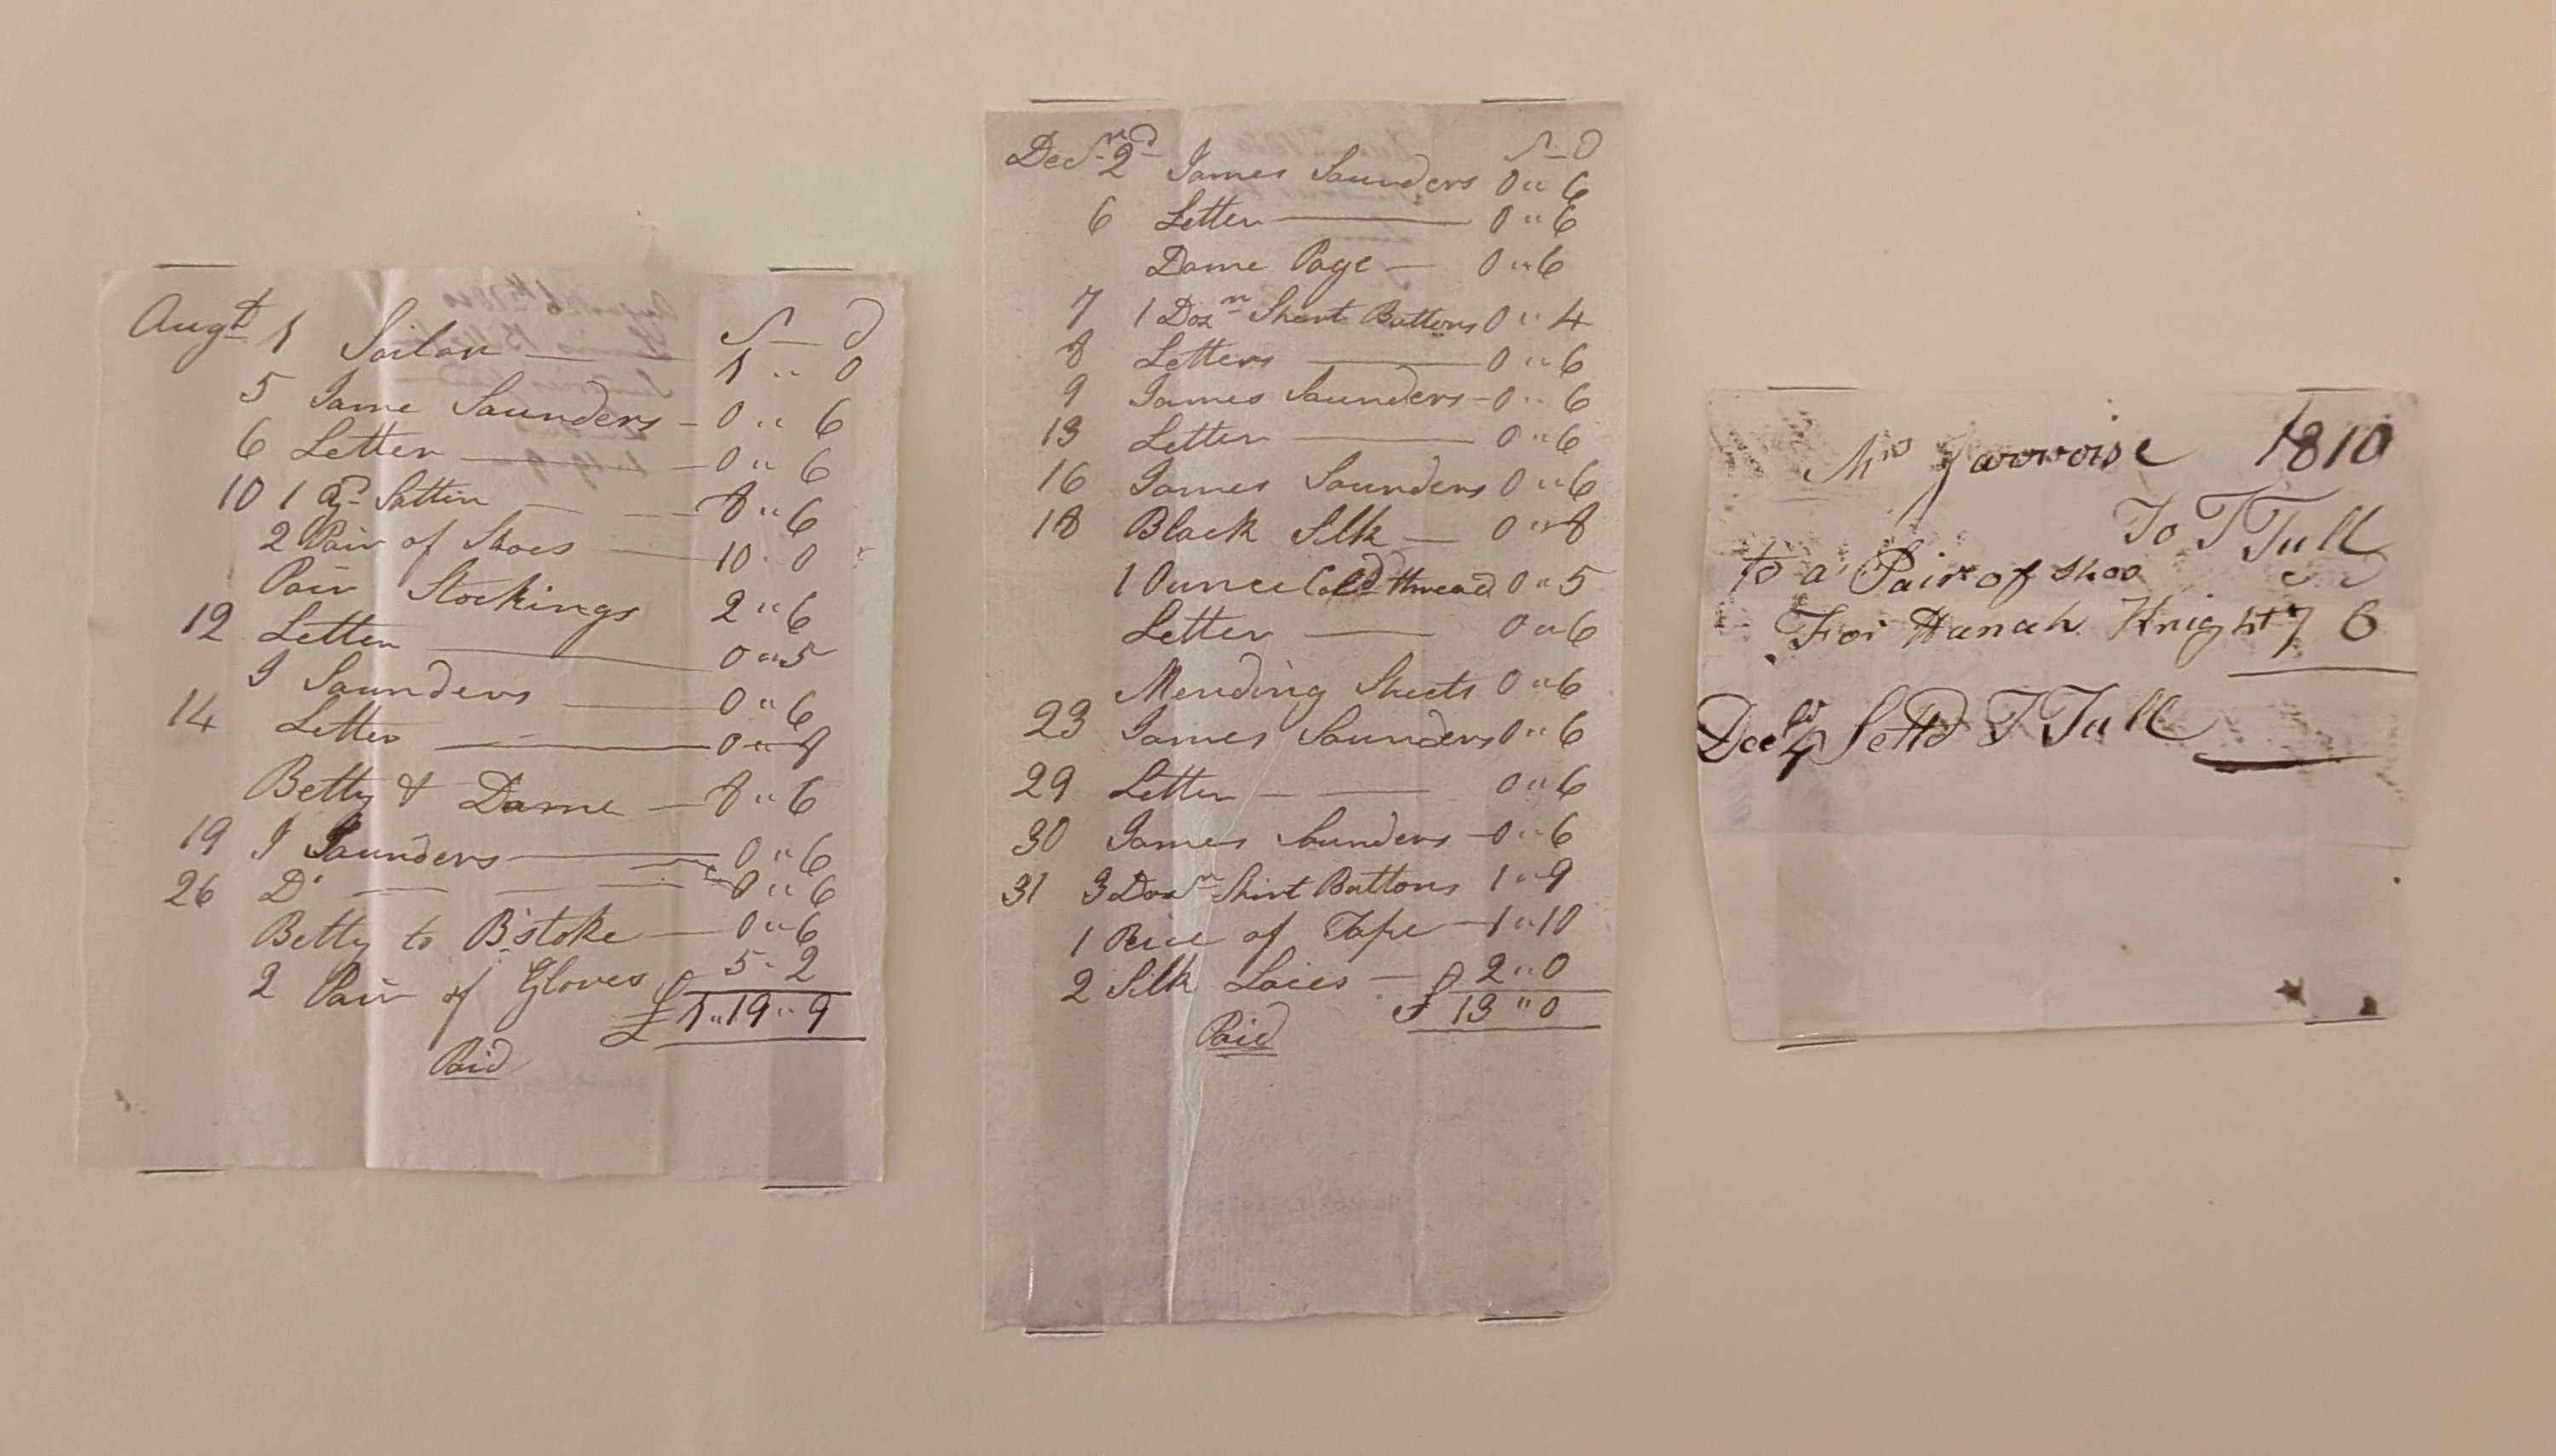 Augt 1 Sailor — S — D
1 " 0
5 Jame Saunders — 0 " 6
6 Letter — 0 " 6
10 1 qr Sattin — 8 " 6
2 Pair of Shoes — 10 " 0
Pair Stockings 2 " 6
12 Letter — 0 " 5
J Saunders — 0 " 6
14 Letter — 0 " 8
Betty & Dame — 8 " 6
19 J Saunders — 0 " 6
26 Do — 0 " 6
Betty to B'stoke — 0 " 6
2 Pair of Gloves 5 - 2
£1 " 19 " 9
Paid
Decm 2d James Saunders S — D
0 " 6
6 Letter — 0 " 6
Dame Page — 0 " 6
7 1 Dozn Shirt Buttons 0 " 4
8 Letters — 0 " 6
9 James Saunders — 0 " 6
13 Letter — 0 " 6
16 James Saunders 0 " 6
18 Black Silk — 0 " 8
1 Ounce Cold thread 0 " 5
Letter — 0 " 6
Mending Sheets 0 " 6
23 James Saunders 0 " 6
29 Letter — 0 " 6
30 James Saunders — 0 " 6
31 3 Dozn Shirt Buttons 1 " 9
1 Peice of Tape — 1 " 10
2 Silk Laces — 2 " 0
£ 13 " 0
Paid
Mrs Jarvoise 1810
To T Tull
to a Pair of shoo
For Hanah Knight 7 6
Decr 4 Settd T Tull